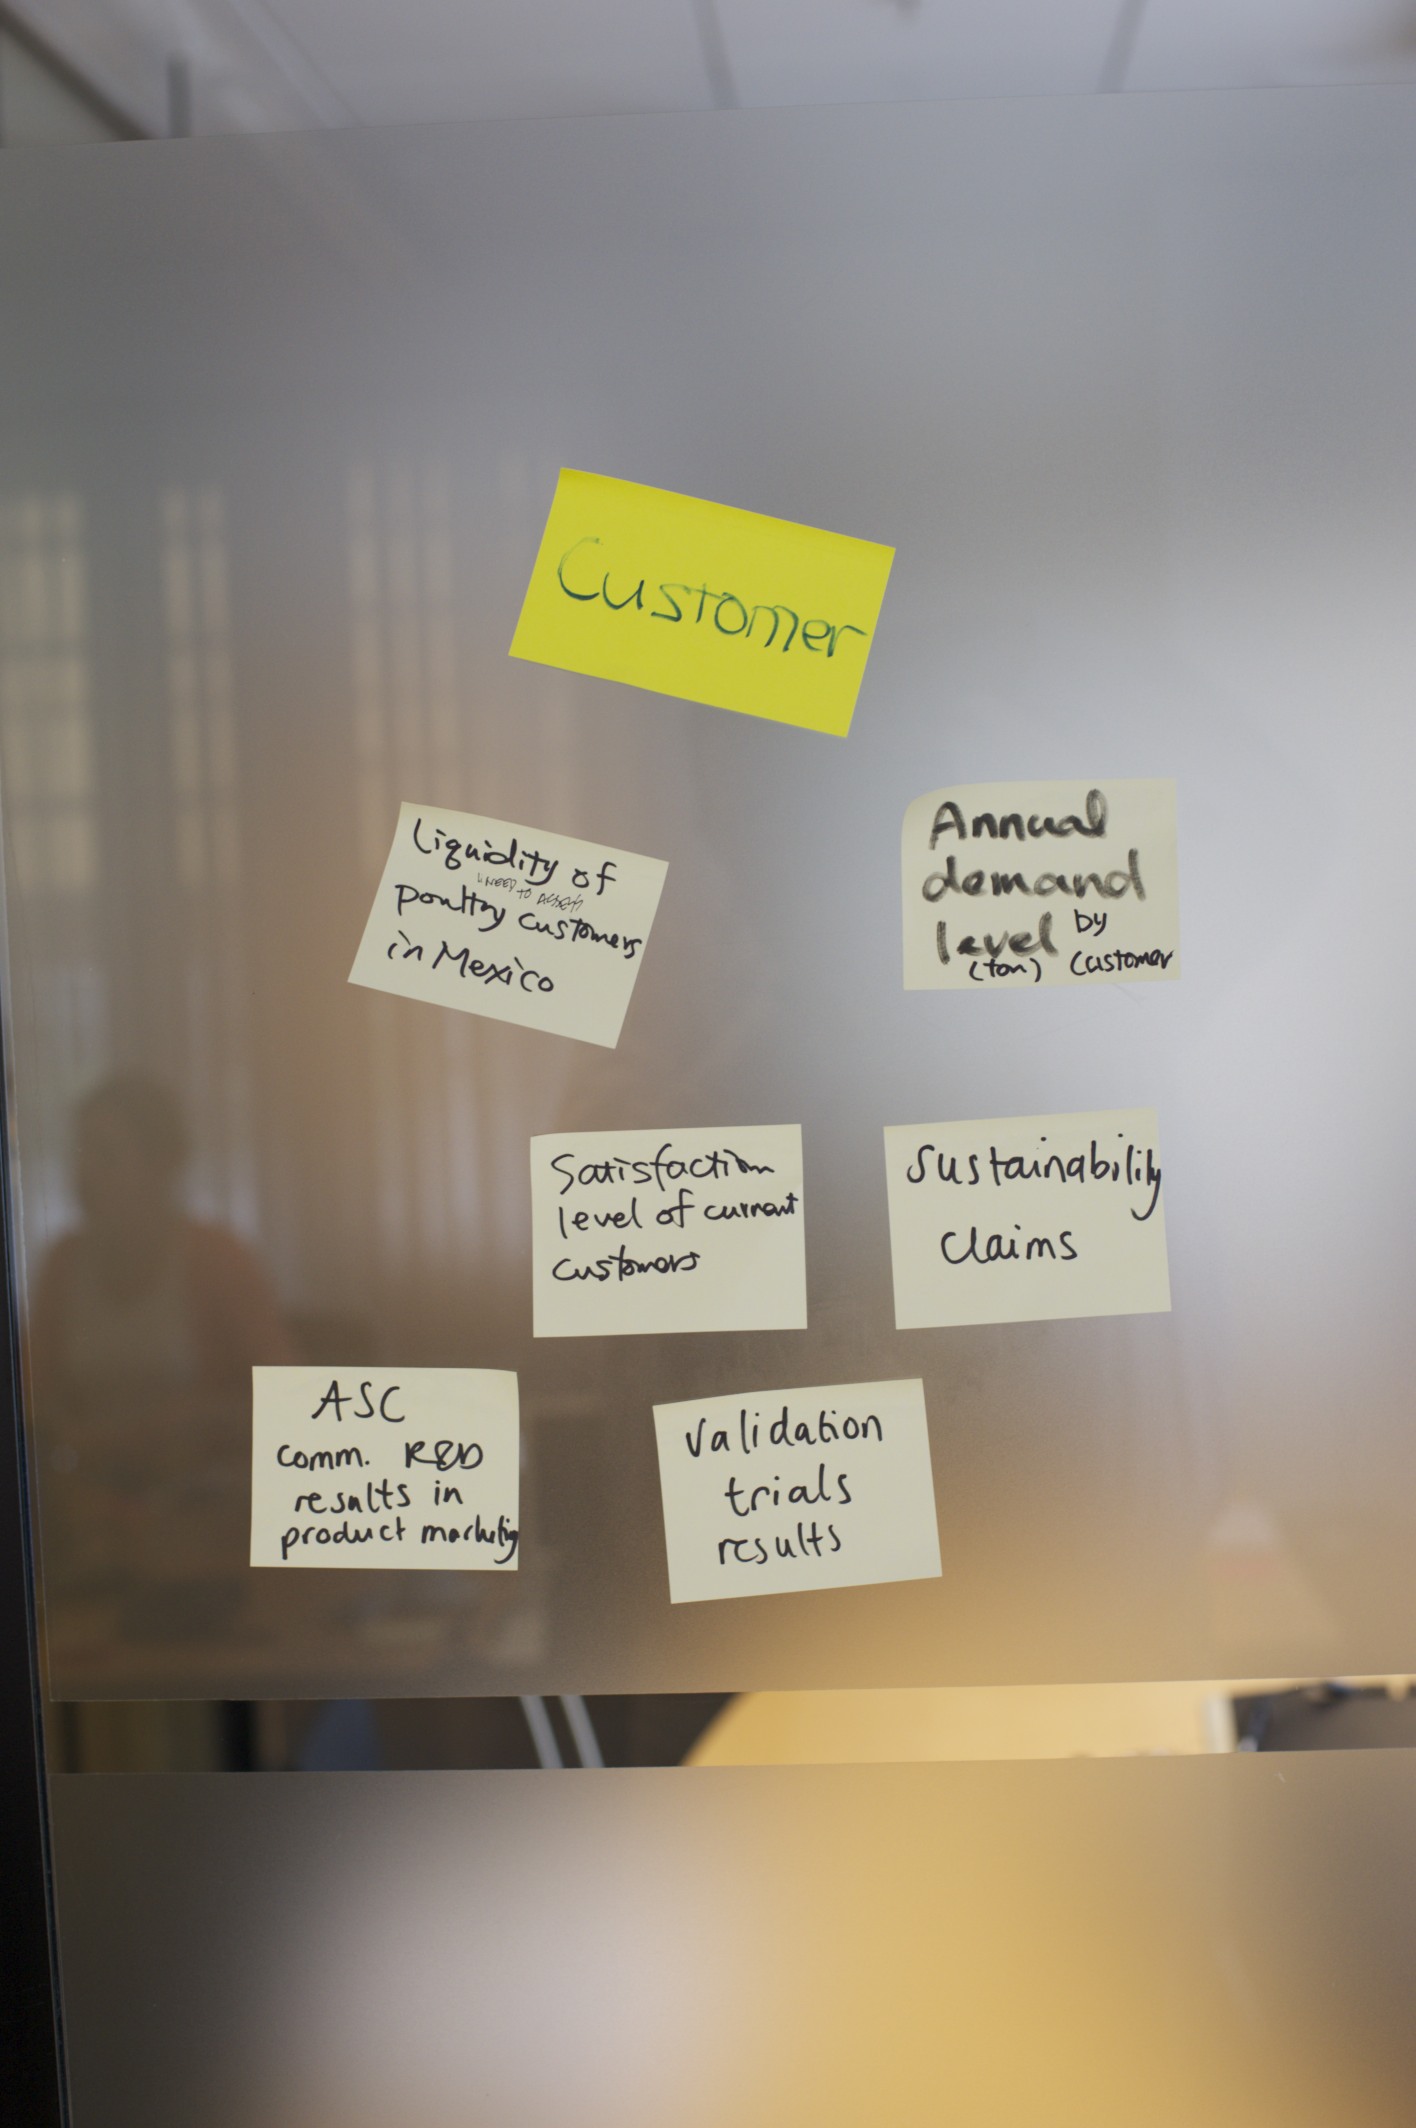 Customer
Liquidity of
NEED TO ASSESS
poultry customers
in Mexico
Annual
demand
level by
(ton) Customer
Satisfaction
level of current
customers
Sustainability
claims
ASC
comm. R&D
results in
product marketing
Validation
trials
results